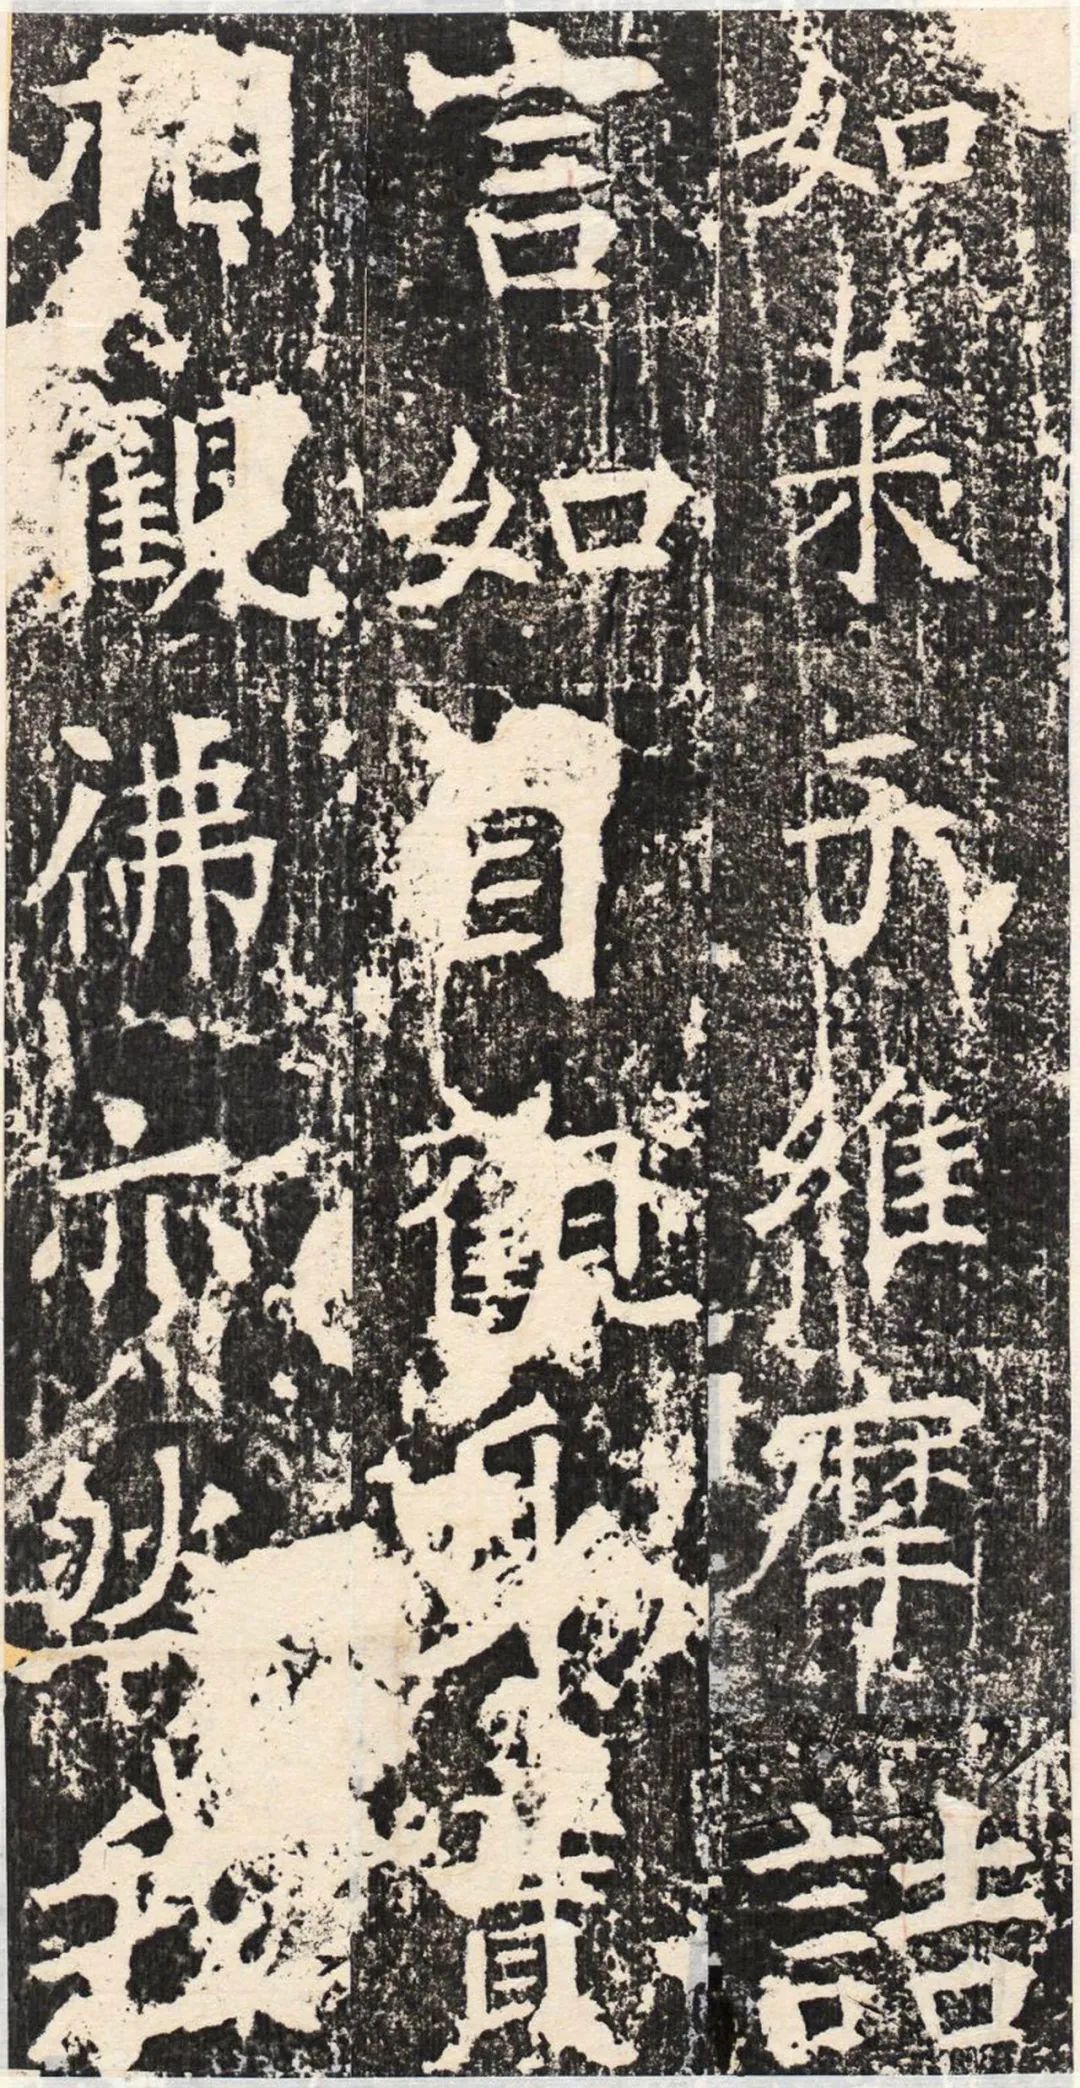 如来乎維摩詰
言如自觀身實
相觀佛亦然我